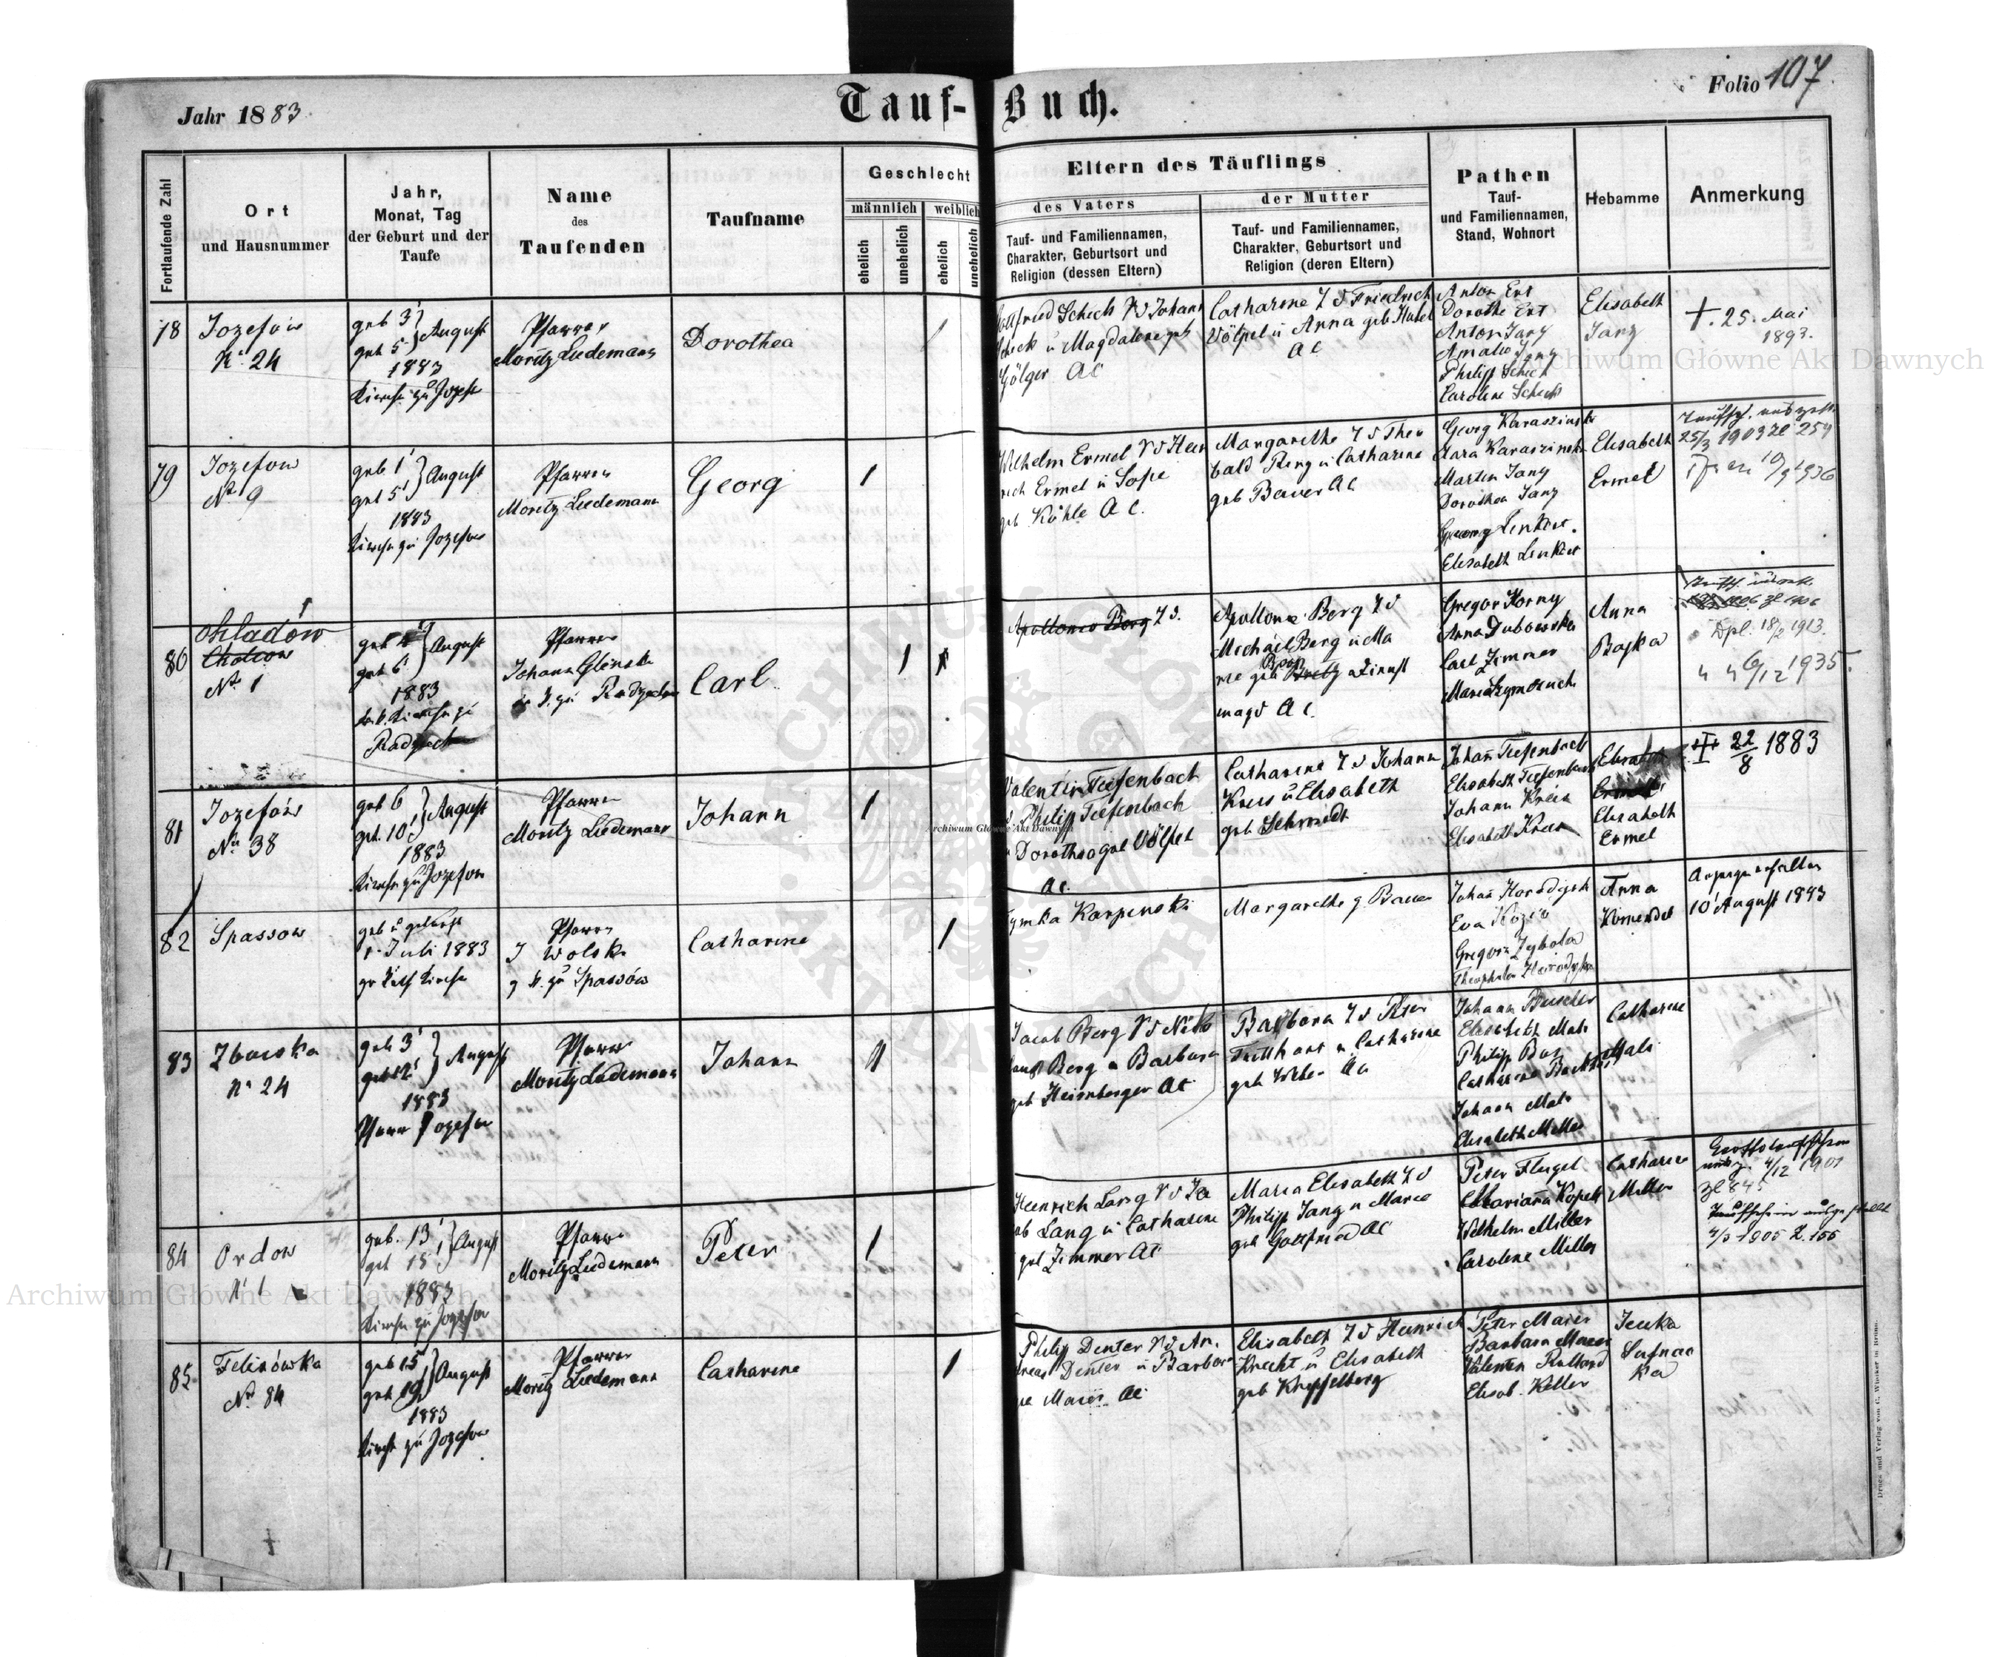 Jahr 1883.
Tauf-Buch.
Folio 107.
Fortlaufende Zahl
Ort
und Hausnummer
Jahr,
Monat, Tag
der Geburt und der
Taufe
Name
des
Taufenden
Taufname
Geschlecht
männlich
weiblich
ehelich
unehelich
ehelich
unehelich
Eltern des Täuflings
des Vaters
Tauf- und Familiennamen,
Charakter, Geburtsort und
Religion (dessen Eltern)
der Mutter
Tauf- und Familiennamen,
Charakter, Geburtsort und
Religion (deren Eltern)
Pathen
Tauf-
und Familiennamen,
Stand, Wohnort
Hebamme
Anmerkung
78
Jozefów
No 24
geb 3 August
get 5
1883
Kirche zu Jozefów
Pfarrer
Moritz Liedemann
Dorothea
Scheck u Magdalena geb
Gölger AC
Catharine T d Friedrich
Völpel u Anna geb Hubel
AC
Anton Ert
Dorothe Ert
Anton Jang
Amalie Jang
Philipp Scheck
Caroline Scheck
Elisabeth
Jang
+. 25. Mai
1893.
79
Jozefow
No 9
geb 1 August
get 5
1883
Kirche zu Jozefow
Pfarrer
Moritz Liedemann
Georg
1
Wilhelm Ermel S d Hein
rich Ermel u Sofie
geb Kühle AC.
Margarethe T d Theo
bald Ring u Catharine
geb Bauer AC
Georg Karaszinski
Clara Karaszinski
Martin Jang
Dorothea Jang
Georg Linkert
Elisabeth Linkert
Elisabeth
Ermel
25/3 1903 Zl 254
10/9 1936
80
Ohladów
Cholcow
No 1
August
get 6
1883
Kirche zu
Radziech
Pfarrer
Johann Glinski
zu Radziechow
Carl
1
Apollonia Berg T d.
Apollonia Berg T d
Michael Berg u Ma
rie geb
magd AC.
Gregor Horny
Anna Dubowska
Carl Zimmer
Maria Szymczuch
Anna
Bojka
Dpl. 18/2 1913.
" " 6/12 1935.
81
Jozefów
No 38
geb 6 August
get 10
1883
Kirche zu Jozefow
Pfarrer
Moritz Liedemann
Johann
1
Valentin Tiefenbach
Philipp Tiefenbach
u Dorothea geb Völpel
AC.
Catharine T d Johann
Kreis u Elisabeth
geb Schmidt
Johann Tiefenbach
Elisabeth Tiefenbach
Johann Kreis
Elisabeth Kreis
Elisabeth
Ermel
Elisabeth
Ermel
22/8 1883
82
Spassow
geb u getauft
Juli 1883
gr kath Kirche
Pfarrer
J Wolski
g k. zu Spassów
Catharine
1
Tymka Karpinski
Margarethe g. Bauer
Johann Horodysk
Eva Kozio
Gregor Zybola
Anna
Komendat
Anzeige erhalten
10 August 1883
83
Zboiska
No 24
geb 3 August
get 12
1883
Pfarre Jozefow
Pfarrer
Moritz Liedemann
Johann
1
Jacob Berg S d Niko
laus Berg u Barbara
geb Heimberger AC
Barbara T d Peter
Tritthart u Catharine
geb Weber AC
Johann Buscher
Elisabeth Mali
Philipp Bas
Johann Mali
Elisabeth Miller
Catharine
Mali
84
Ordow
N 1
geb. 13 August
get 15
1883
Kirche zu Jozefow
Pfarrer
Moritz Liedemann
Peter
1
Heinrich Lang S d Ja
kob Lang u Catharine
geb Zimmer AC
Maria Elisabeth T d
Philipp Jang u Marie
geb Gottfried AC
Peter Flugel
Mariana Kopelt
Wilhelm Miller
Caroline Miller
Catharine
Miller
4/12 1901
Zl 845
Taufschein ausgestellt
4/3 1905 Z. 155
85
Felixówka
No 84
geb 15 August
get 19
1883
Kirche zu Jozefow
Pfarrer
Moritz Liedemann
Catharine
1
Philip Denter S d An
dreas Denter u Barbara
ne Maier AC
Elisabeth T d Heinrich
Knecht u Elisabeth
geb Knipfelberg
Peter Maier
Barbara Maier
Valentin Rulland
Elisab. Keller
Jenka
Archiwum Główne Akt Dawnych
Archiwum Główne Akt Dawnych
Archiwum Główne Akt Dawnych
ARCHIWUM GŁÓWNE AKT DAWNYCH